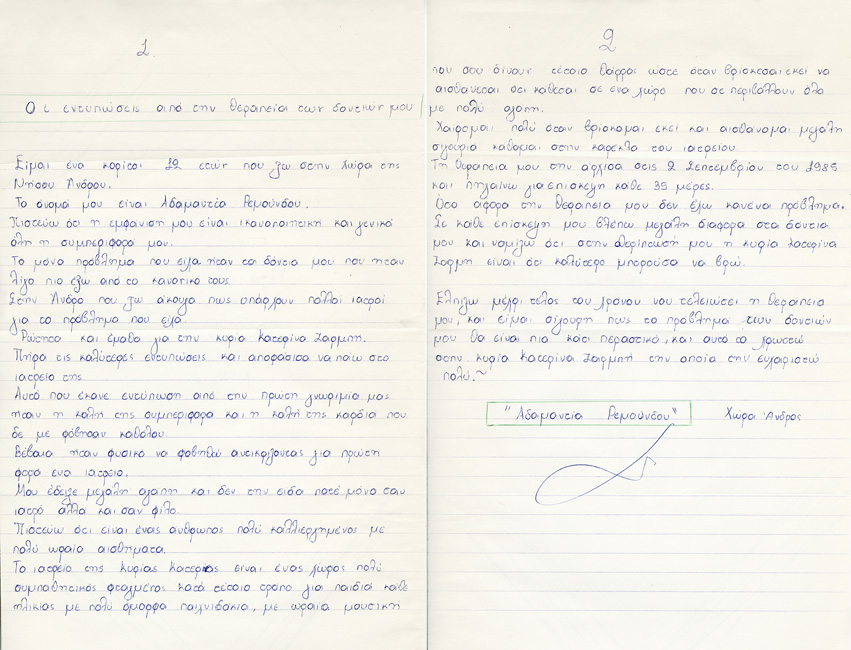 1.
Οι εντυπώσεις από την θεραπεία των δοντιών μου
Είμαι ένα κορίτσι 12 ετών που ζω στην Χώρα της
Νήσου Άνδρου.
Το ονομά μου είναι Αδαμαντία Ρεμούνδου.
Πιστεύω ότι η εμφάνιση μου είναι ικανοποιητική και γενικά
όλη η συμπεριφορά μου.
Το μόνο πρόβλημα που είχα ήταν τα δόντια μου που ήταν
λίγο πιο έξω από το κανονικό τους.
Στην Άνδρο που ζω άκουγα πως υπάρχουν πολλοί ιατροί
για το πρόβλημα που είχα.
Ρώτησα και έμαθα για την κυρία Κατερίνα Σαρμπή.
Πήρα τις καλύτερες εντυπώσεις και αποφάσισα να πάω στο
ιατρείο της.
Αυτό που έκανε εντύπωση από την πρώτη γνωριμία μας
ήταν η καλή της συμπεριφορά και η καλή της καρδιά που
δε με φόβησαν καθόλου.
Βέβαια ήταν φυσικό να φοβηθώ αντικρίζοντας για πρώτη
φορά ένα ιατρείο.
Μου έδειξε μεγάλη αγάπη και δεν την είδα ποτέ μόνο σαν
ιατρό αλλά και σαν φίλο.
Πιστεύω ότι είναι ένας άνθρωπος πολύ καλλιεργημένος με
πολύ ωραία αισθήματα.
Το ιατρείο της κυρίας Κατερίνας είναι ένας χώρος πολύ
συμπαθητικός φτιαγμένος κατά τέτοιο τρόπο για παιδιά κάθε
ηλικίας με πολύ όμορφα παιχνιδάκια, με ωραία μουσική
2
που σου δίνουν τέτοιο θάρρος ώστε όταν βρίσκεσαι εκεί να
αισθάνεσαι ότι κάθεσαι σε ένα χώρο που σε περιβάλλουν όλα
με πολύ αγάπη.
Χαίρομαι πολύ όταν βρίσκομαι εκεί και αισθάνομαι μεγάλη
σιγουριά καθόμαι στην καρέκλα του ιατρείου.
Τη θεραπεία μου την άρχισα στις 2 Σεπτεμβρίου του 1985
και πηγαίνω για επίσκεψη κάθε 35 μέρες.
Όσο αφορά την θεραπεία μου δεν έχω κανένα πρόβλημα.
Σε κάθε επίσκεψή μου βλέπω μεγάλη διαφορά στα δόντια
μου και νομίζω ότι στην περίπτωσή μου η κυρία Κατερίνα
Σαρμπή είναι ότι καλύτερο μπορούσα να βρω.
Ελπίζω μέχρι τέλος του χρόνου να τελειώσει η θεραπεία
μου, και είμαι σίγουρη πως το πρόβλημα των δοντιών
μου θα είναι πια κάτι περαστικό, και αυτό το χρωστώ
στην κυρία Κατερίνα Σαρμπή την οποία την ευχαριστώ
πολύ.~
"Αδαμαντία Ρεμούνδου" Χώρα Άνδρος